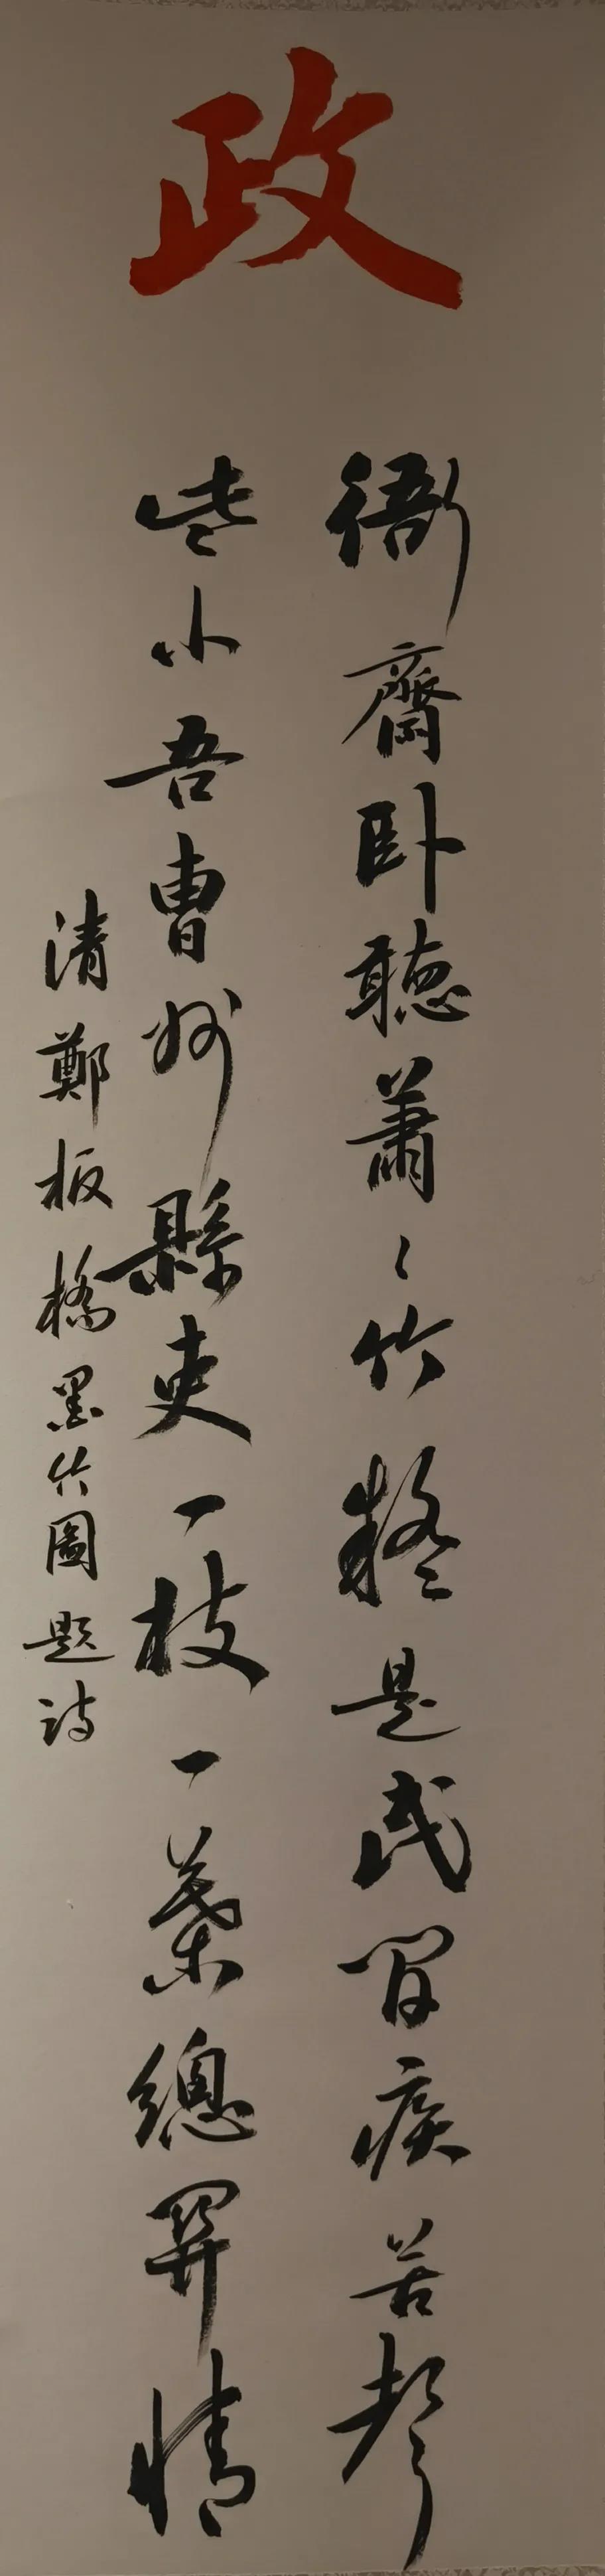 政
衙齋卧聽蕭〻竹疑是民間疾苦聲
些小吾曹州縣吏一枝一葉總關情
清鄭板橋墨竹圖題詩